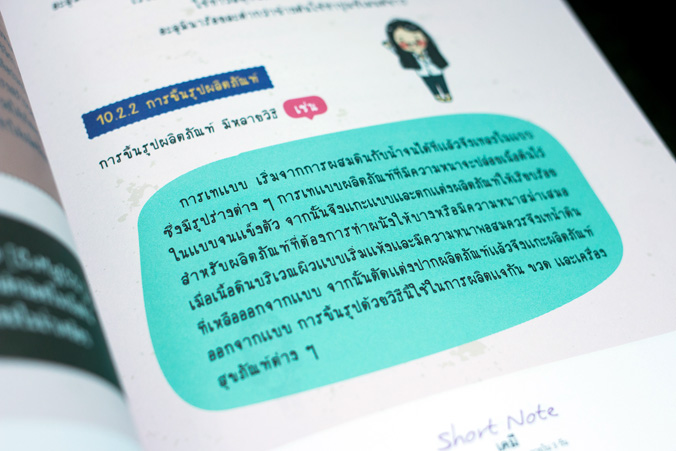 อะลูมินาร้อยละ
10.2.2 การขึ้นรูปผลิตภัณฑ์
การขึ้นรูปผลิตภัณฑ์ มีหลายวิธี เช่น
การเทแบบ เริ่มจากการผสมดินกับน้ำจนได้ที่แล้วจึงเทลงในแบบ
ซึ่งมีรูปร่างต่าง ๆ การเทแบบผลิตภัณฑ์ที่มีความหนาจะปล่อยเนื้อดินไว้
ในแบบจนแข็งตัว จากนั้นจึงแกะแบบและตกแต่งผลิตภัณฑ์ให้เรียบร้อย
สำหรับผลิตภัณฑ์ที่ต้องการทำผนังให้บางหรือมีความหนาสม่ำเสมอ
เมื่อเนื้อดินบริเวณผิวแบบเริ่มแห้งและมีความหนาพอสมควรจึงเทน้ำดิน
ที่เหลือออกจากแบบ จากนั้นตัดแต่งปากผลิตภัณฑ์แล้วจึงแกะผลิตภัณฑ์
ออกจากแบบ การขึ้นรูปด้วยวิธีนี้ใช้ในการผลิตแจกัน ขวด และเครื่อง
สุขภัณฑ์ต่าง ๆ
Short Note
เคมี